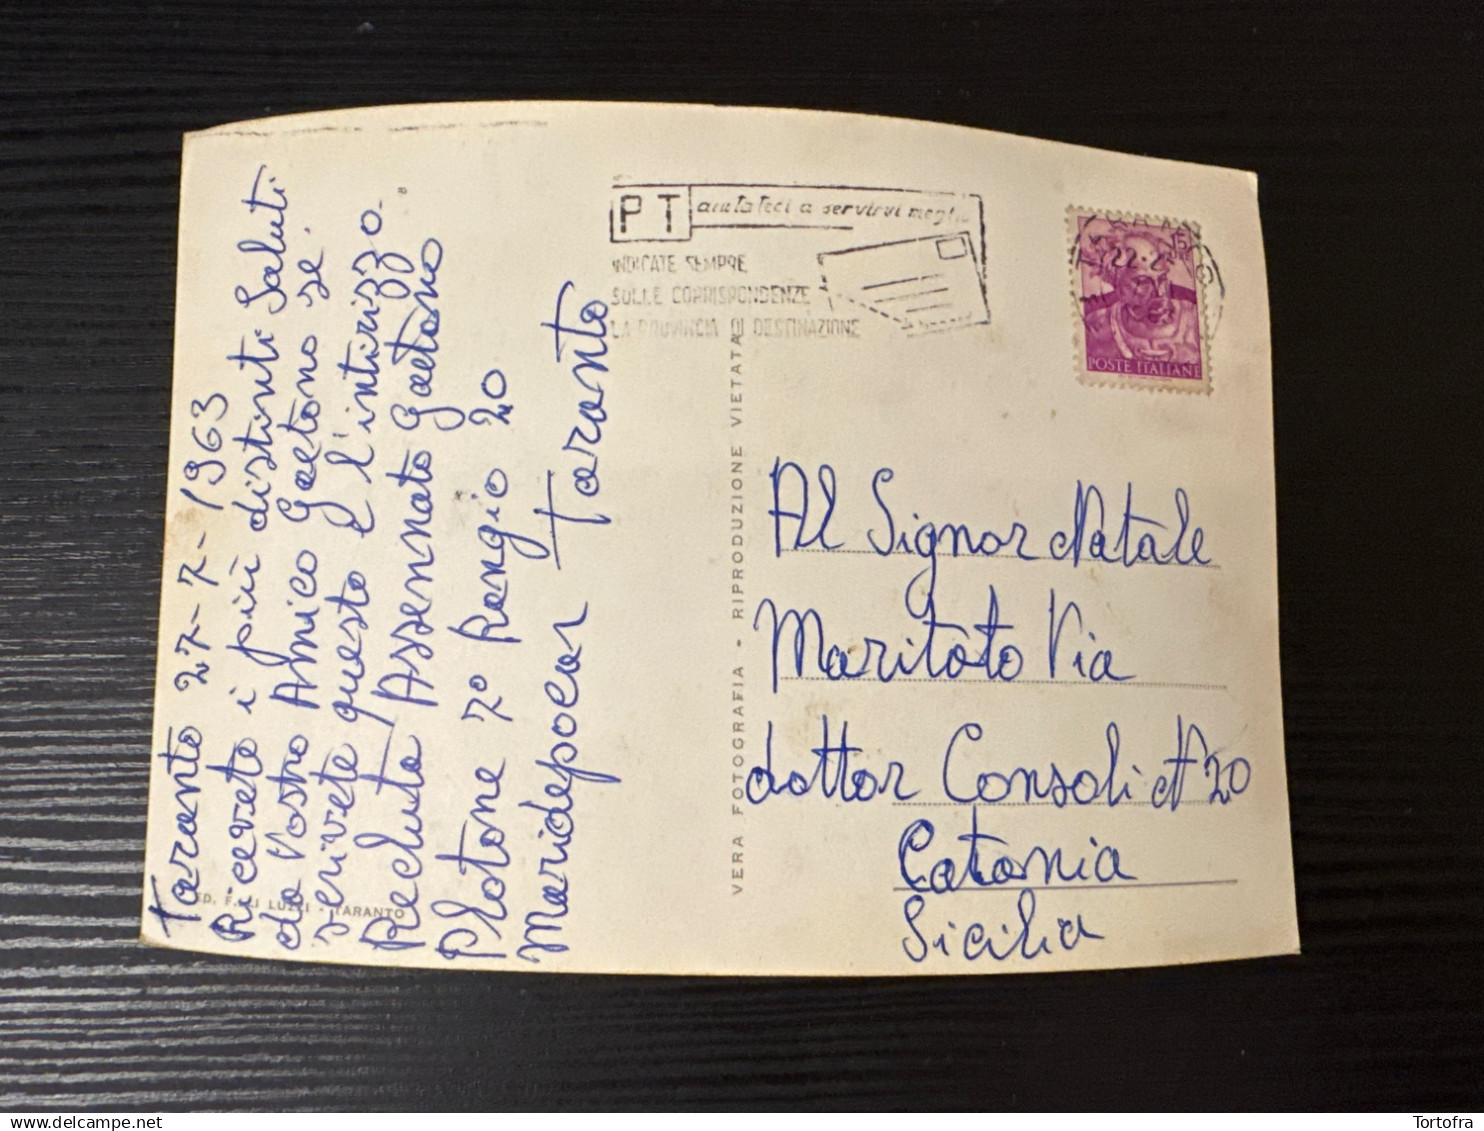 Taranto 27-7-1963
Ricevete i più distinti Saluti
da Vostro Amico Gaetano se.
scrivete questo è l'intirizzo.
Recluta Assennato Gaetano
Plotone 7° Rengio 20
Maridepocar Taranto
ED. F.LLI LUZZI - TARANTO
VERA FOTOGRAFIA - RIPRODUZIONE VIETATA
PT aiutateci a servirvi meglio
INDICATE SEMPRE
SULLE CORRISPONDENZE
LA PROVINCIA DI DESTINAZIONE
15
POSTE ITALIANE
Al Signor Natale
Maritato Via
dottor Consoli N 20
Catania
Sicilia
Tortofra